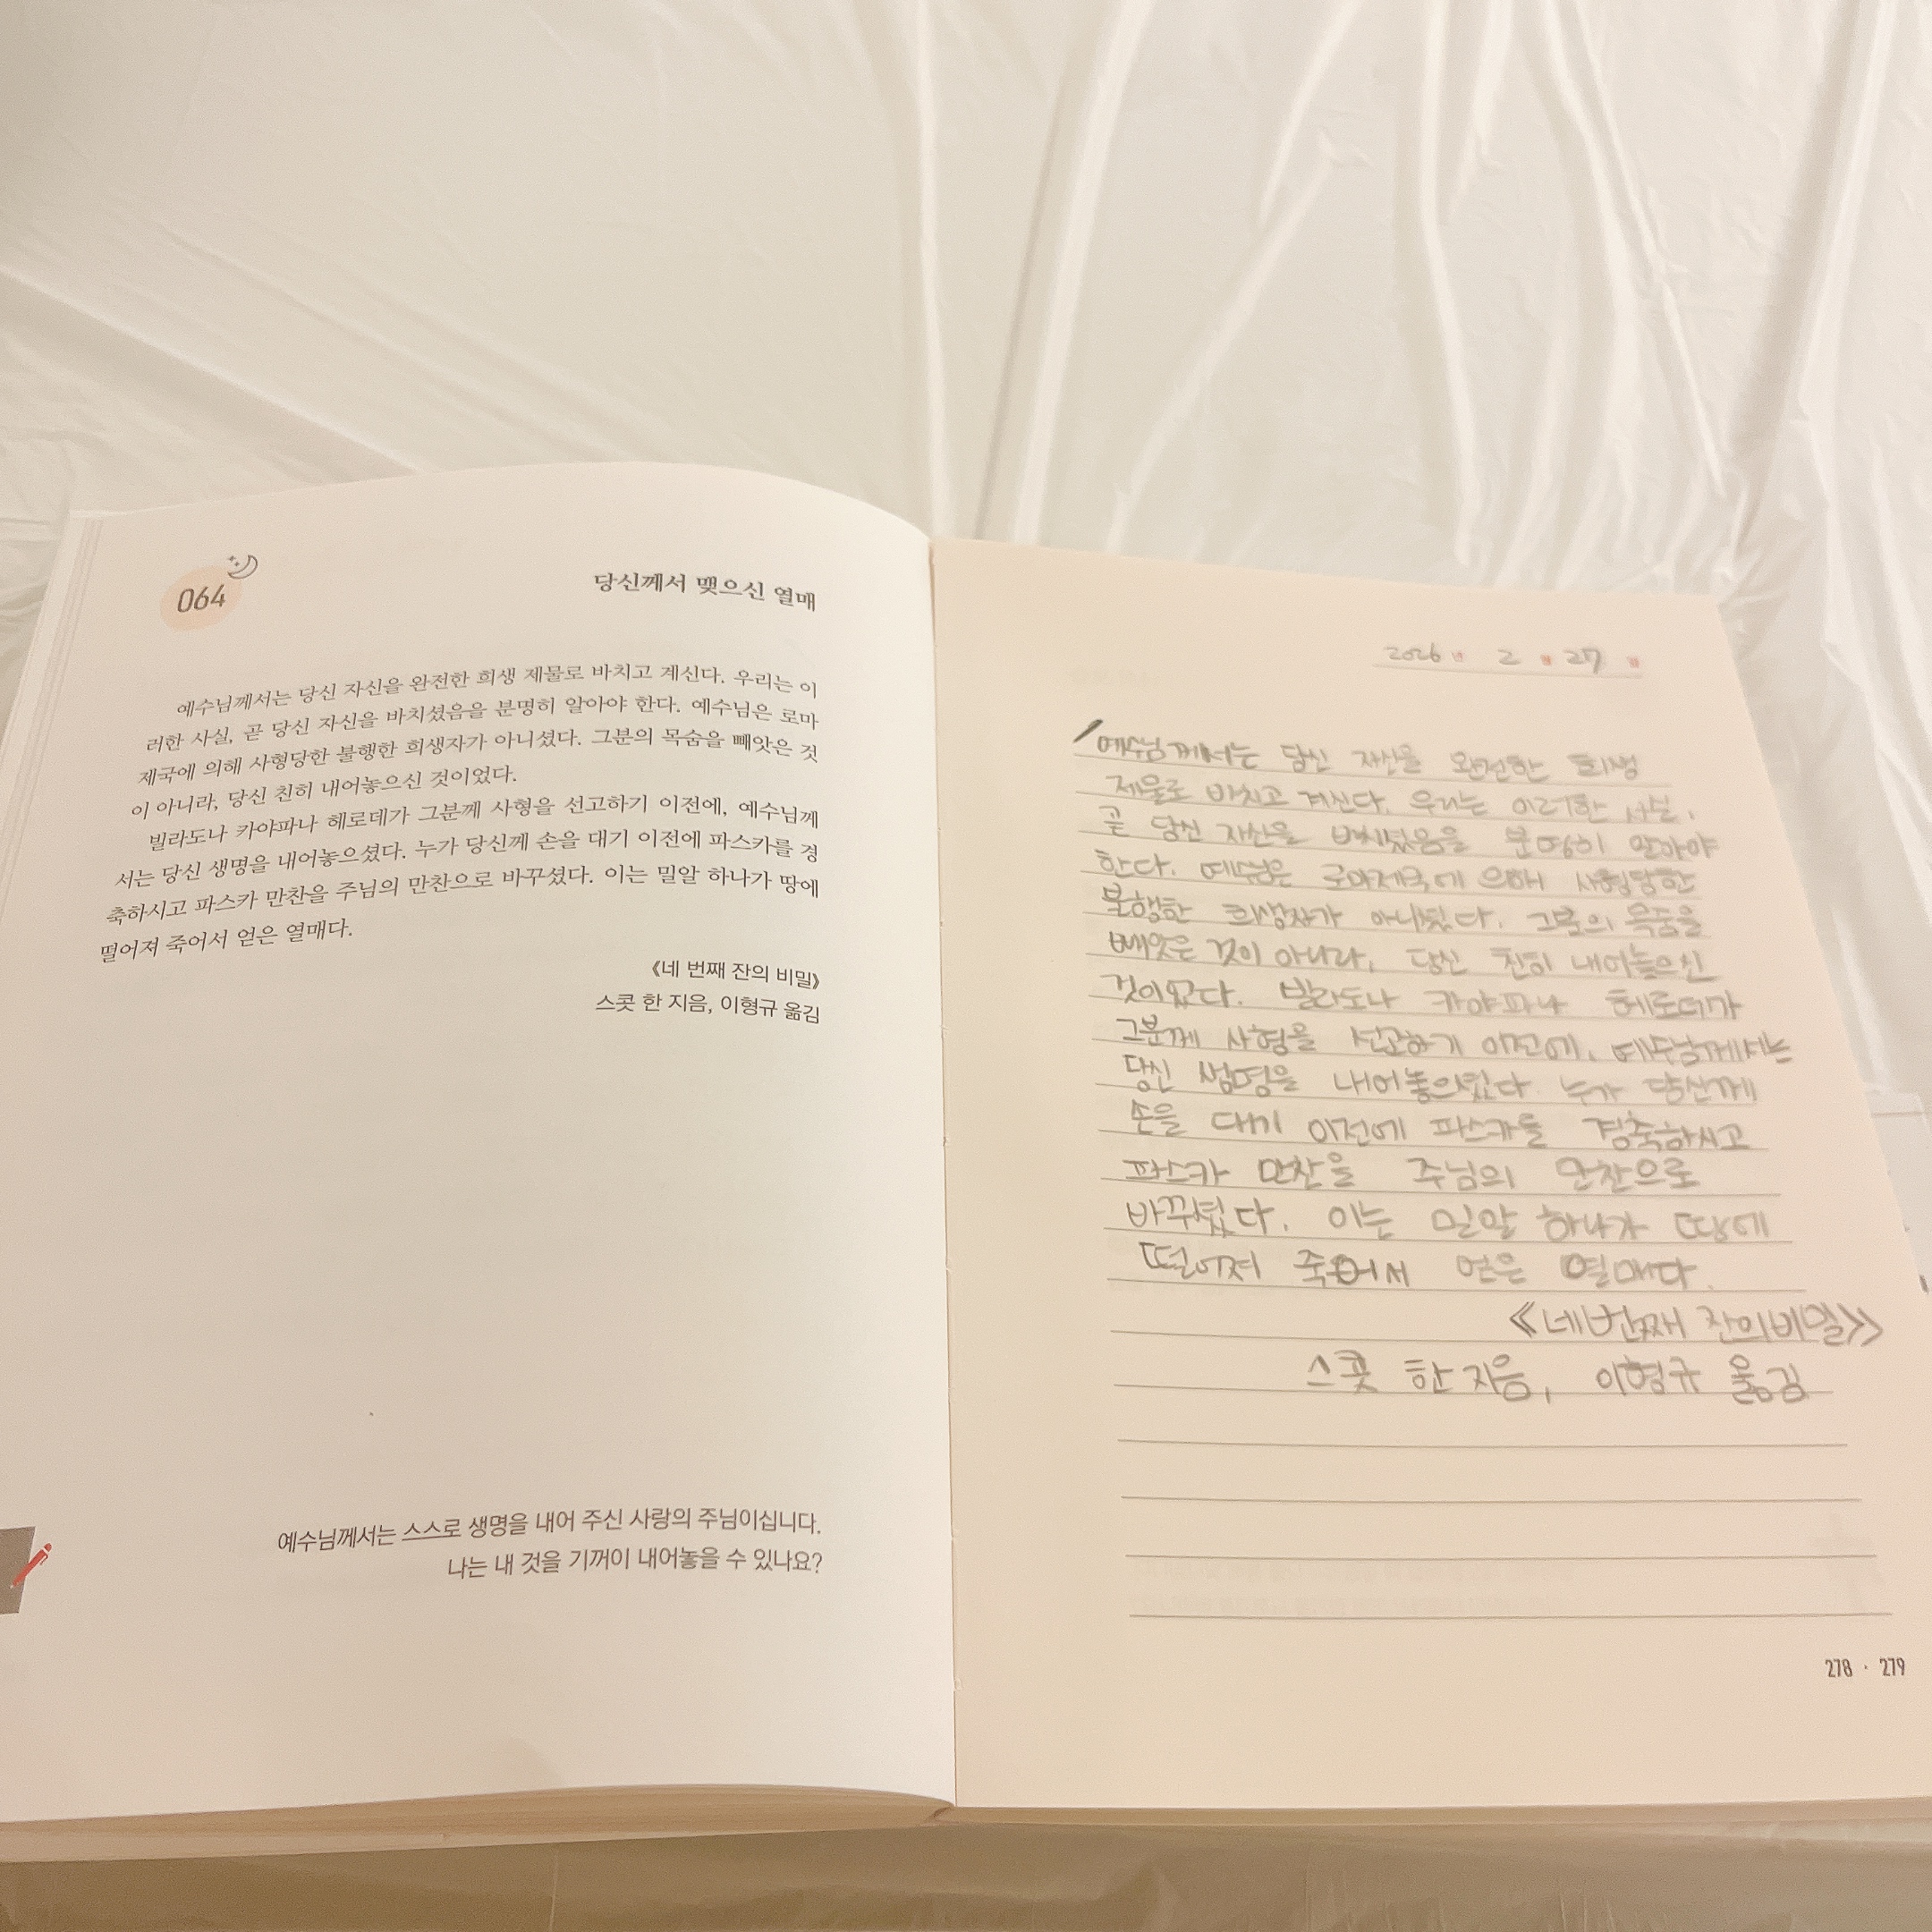 064
당신께서 맺으신 열매
예수님께서는 당신 자신을 완전한 희생 제물로 바치고 계신다. 우리는 이
러한 사실, 곧 당신 자신을 바치셨음을 분명히 알아야 한다. 예수님은 로마
제국에 의해 사형당한 불행한 희생자가 아니셨다. 그분의 목숨을 빼앗은 것
이 아니라, 당신 친히 내어놓으신 것이었다.
빌라도나 카야파나 헤로데가 그분께 사형을 선고하기 이전에, 예수님께
서는 당신 생명을 내어놓으셨다. 누가 당신께 손을 대기 이전에 파스카를 경
축하시고 파스카 만찬을 주님의 만찬으로 바꾸셨다. 이는 밀알 하나가 땅에
떨어져 죽어서 얻은 열매다.
《네 번째 잔의 비밀》
스콧 한 지음, 이형규 옮김
예수님께서는 스스로 생명을 내어 주신 사랑의 주님이십니다.
나는 내 것을 기꺼이 내어놓을 수 있나요?
2026 2 27
예수님께서는 당신 자신을 완전한 희생
제물로 바치고 계신다. 우리는 이러한 사실,
곧 당신 자신을 바치셨음을 분명히 알아야
한다. 예수님은 로마제국에 의해 사형당한
불행한 희생자가 아니셨다. 그분의 목숨을
빼앗은 것이 아니라, 당신 친히 내어놓으신
것이었다. 빌라도나 카야파나 헤로데가
그분께 사형을 선고하기 이전에, 예수님께서는
당신 생명을 내어놓으셨다 누가 당신께
손을 대기 이전에 파스카를 경축하시고
파스카 만찬을 주님의 만찬으로
바꾸셨다. 이는 밀알 하나가 땅에
떨어져 죽어서 얻은 열매다.
《네번째 잔의비밀》
스콧 한 지음, 이형규 옮김
278 · 279